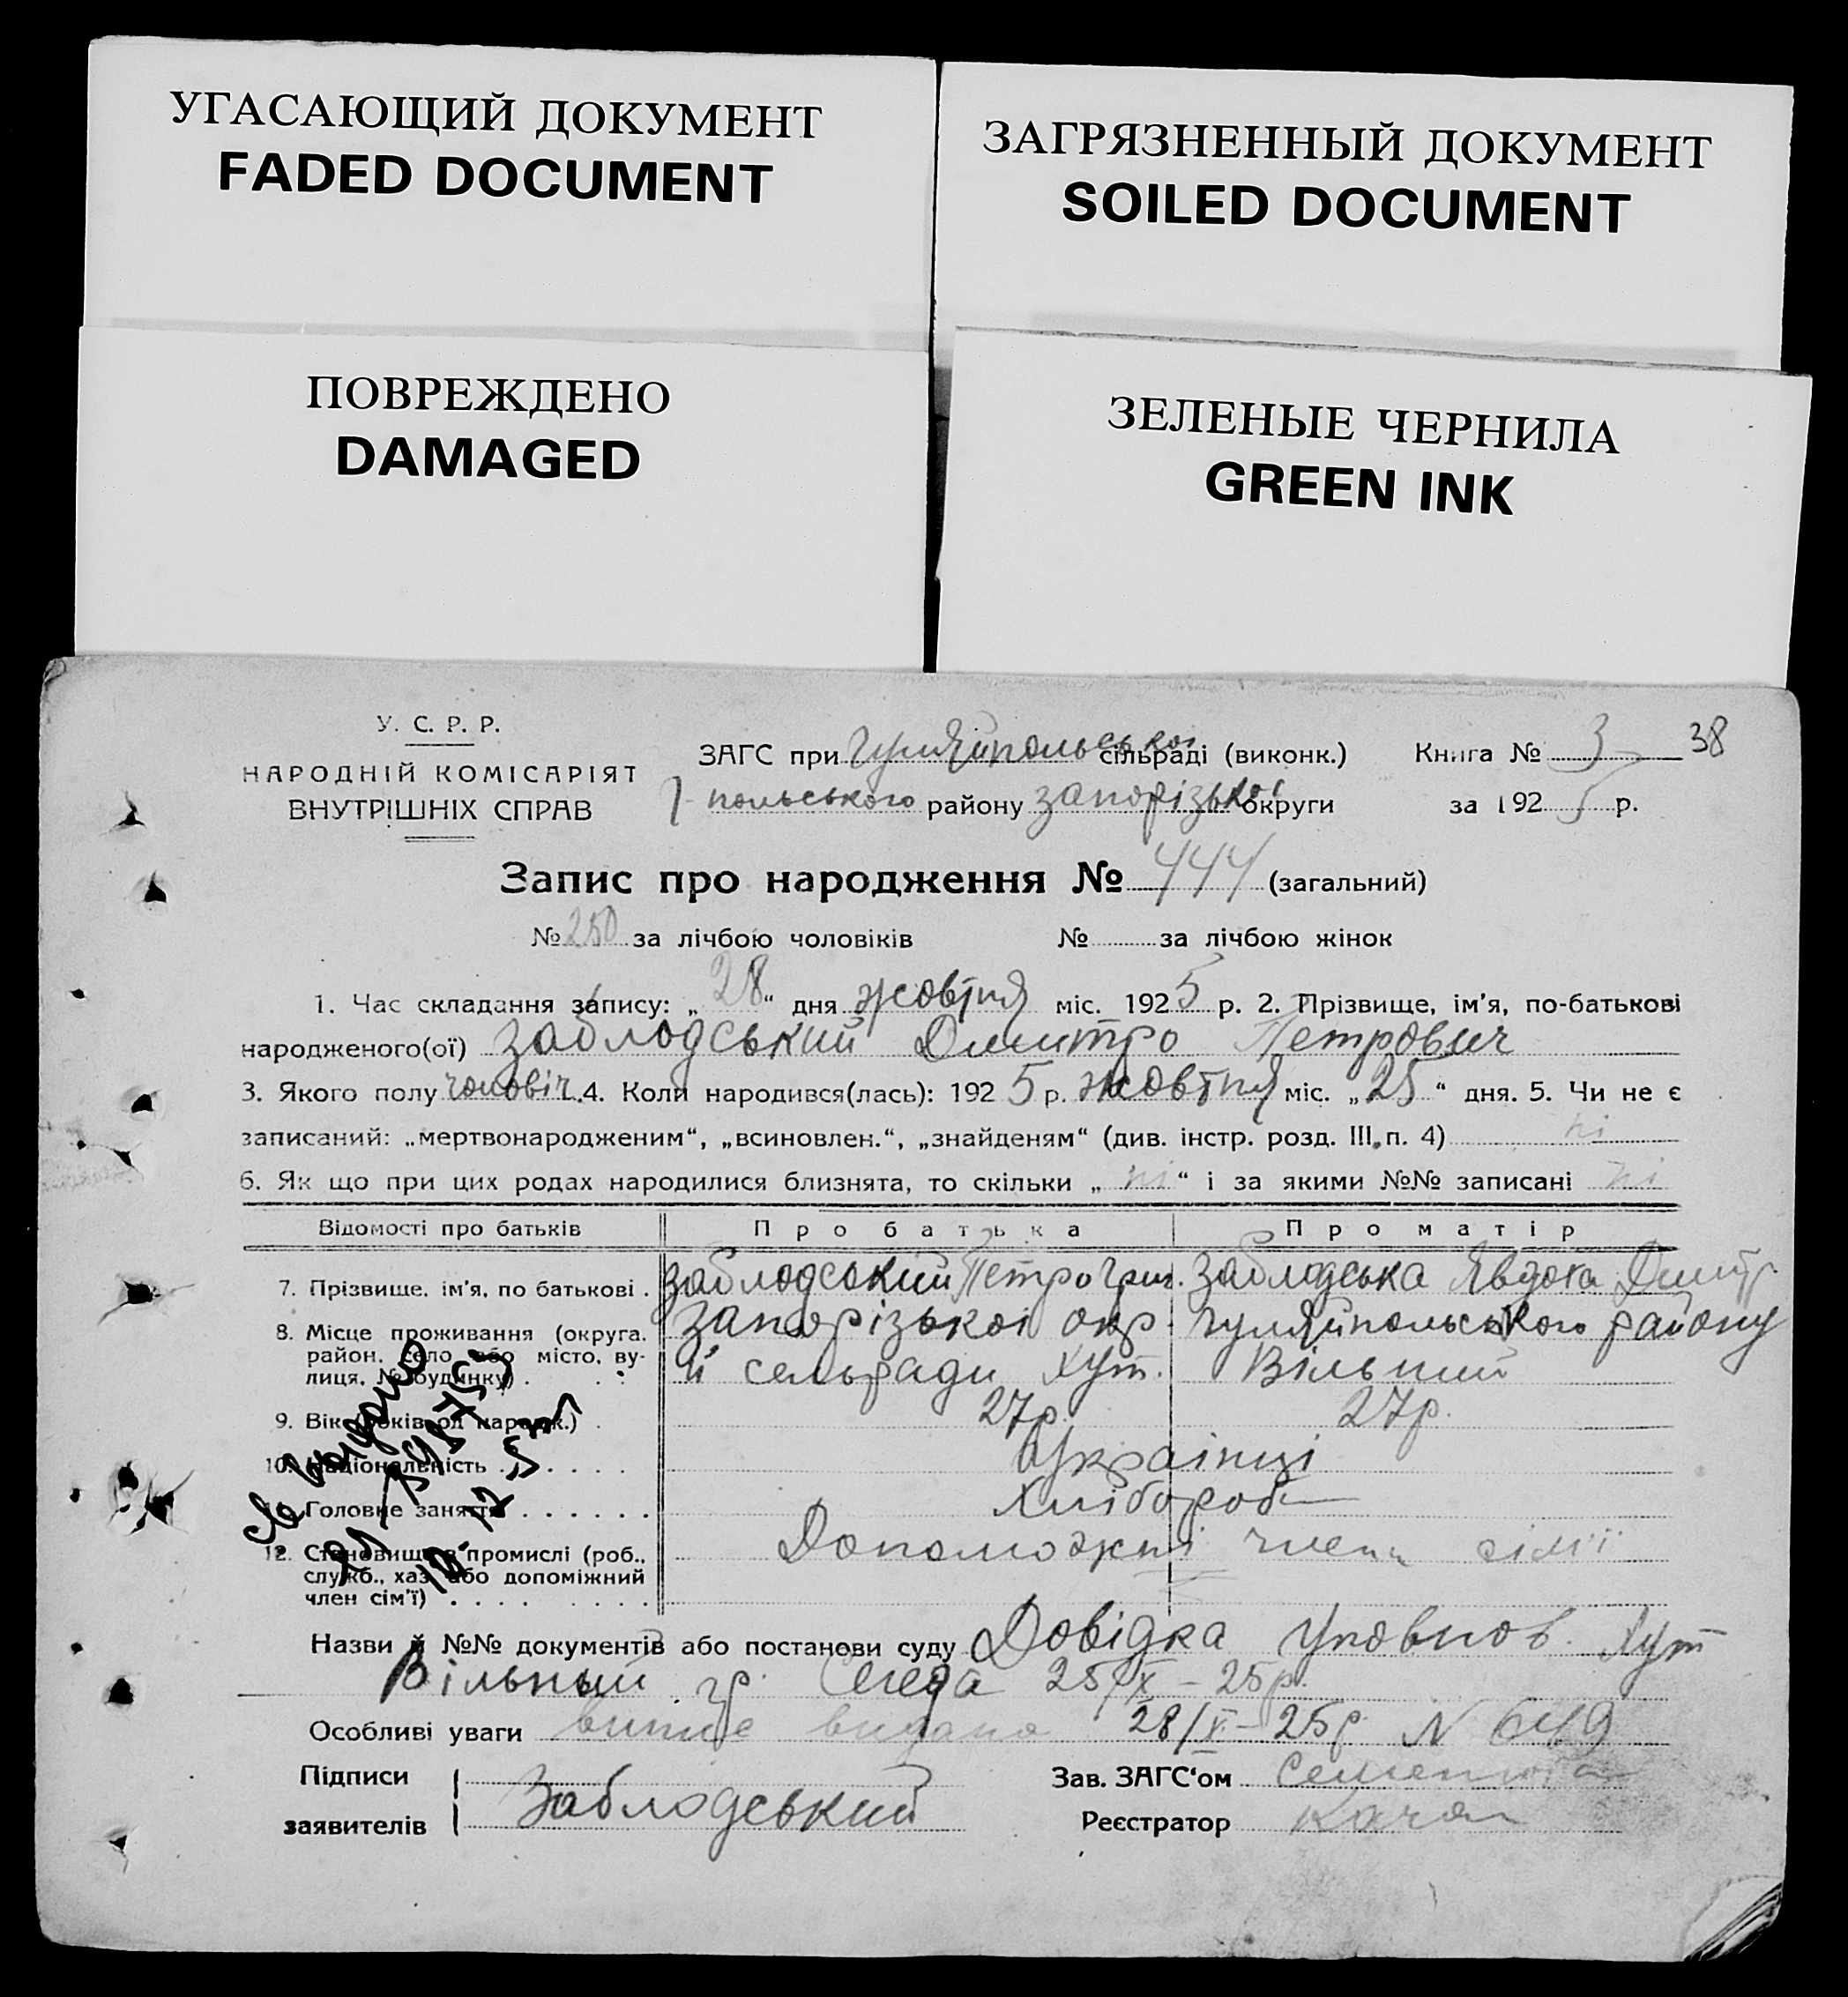 УГАСАЮЩИЙ ДОКУМЕНТ
FADED DOCUMENT
ЗАГРЯЗНЕННЫЙ ДОКУМЕНТ
SOILED DOCUMENT
ПОВРЕЖДЕНО
DAMAGED
ЗЕЛЕНЫЕ ЧЕРНИЛА
GREEN INK
У. С. Р. Р.
НАРОДНІЙ КОМІСАРІЯТ
ВНУТРІШНІХ СПРАВ
ЗАГС при Гуляйпольської сільраді (виконк.) Книга № 3 38
Г-польського району Запорізької округи за 1925 р.
Запис про народження № 444 (загальний)
№ 250 за лічбою чоловіків № за лічбою жінок
1. Час складання запису: „28“ дня жовтня міс. 1925 р. 2. Прізвище, ім'я, по-батькові
народженого(ої) Заблодський Дмитро Петрович
3. Якого полу чоловіч. 4. Коли народився(лась): 1925 р. жовтня міс. „25“ дня. 5. Чи не є
записаний: „мертвонародженим“, „всиновлен.“, „знайденям“ (див. інстр. розд. III, п. 4) ні
6. Як що при цих родах народилися близнята, то скільки „ні“ і за якими №№ записані ні
Відомості про батьків Про батька Про матір
7. Прізвище, ім'я, по батькові . Заблодський Петро Григ. Заблодська Явдоха Дмитр.
8. Місце проживання (округа, Запорізької окр. Гуляйпольського району
район, село або місто, ву-
лиця, № будинку) . . . й сельради хут. Вільний
9. Вік (років од народж.) . 27р. 27р.
10. Національність . . . . . . Українці
11. Головне заняття . . . . . . Хлібороб
12. Становище в промислі (роб., Допоможні члени сім'ї
служб., хаз. або допоміжний
член сім'ї) . . . . . . . .
Назви й №№ документів або постанови суду Довідка Уповнов. Хут
Вільный гр. Сегеда 25/X - 25р.
Особливі уваги випис видано 28/X - 25р N 649
Підписи
заявителів Заблодський
Зав. ЗАГС‘ом
Реєстратор